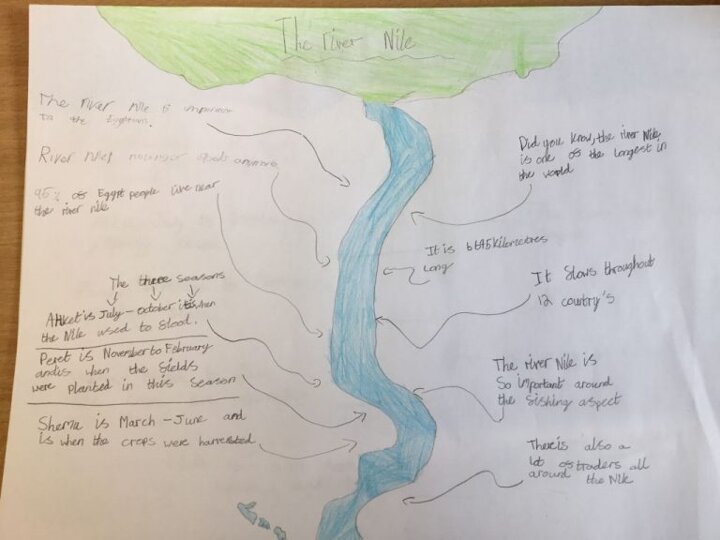 The river Nile
The river Nile is important
to the Egyptians.
River Niles floods anymore
95% of Egypt people live near
the river nile
The three seasons
Ahket is July - October it is when
the Nile used to flood.
Peret is November to February
and is when the fields
were planted in this season
Shema is March - June and
is when the crops were harvested
Did you know, the river Nile
is one of the longest in
the world
It is 6695 kilometres
long
It flows throughout
12 country's
The river Nile is
so important around
the fishing aspect
There is also a
lot of traders all
around the Nile